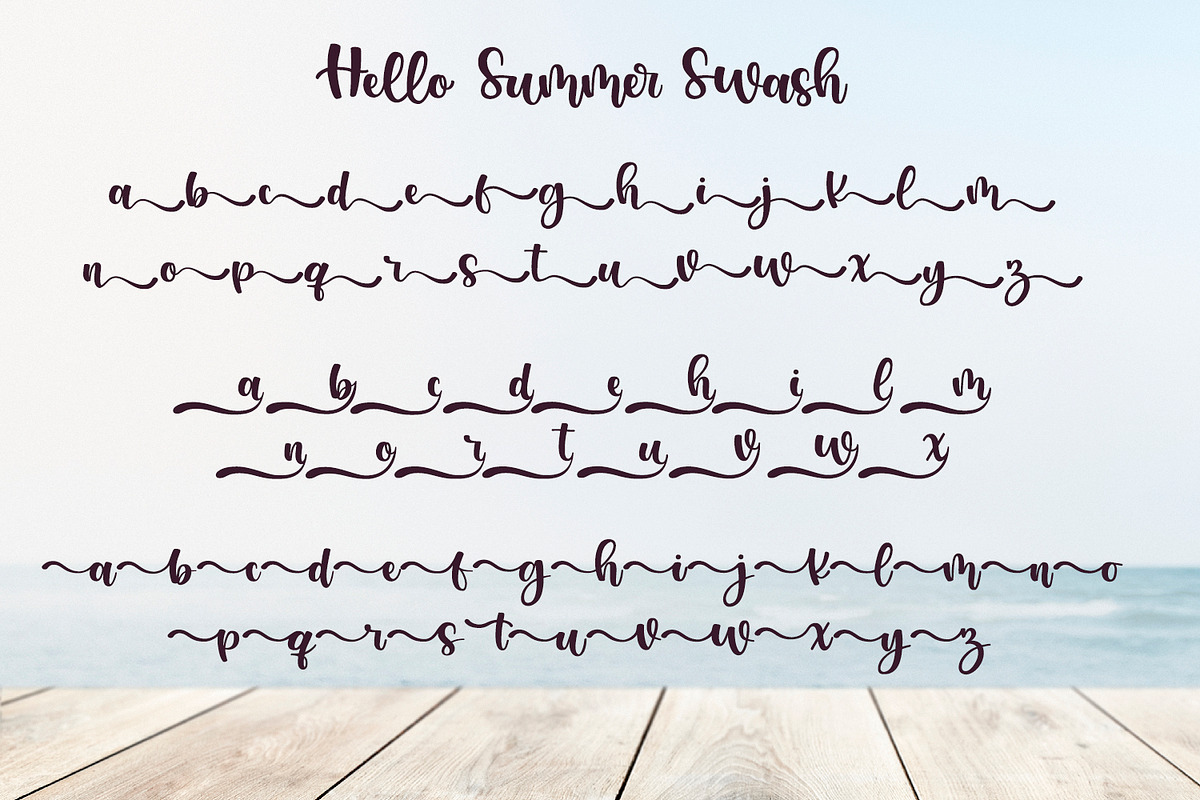 Hello Summer Swash
a b c d e f g h i j k l m
n o p q r s t u v w x y z
a b c d e h i l m
n o r t u v w x
a b c d e f g h i j k l m n o
p q r s t u v w x y z